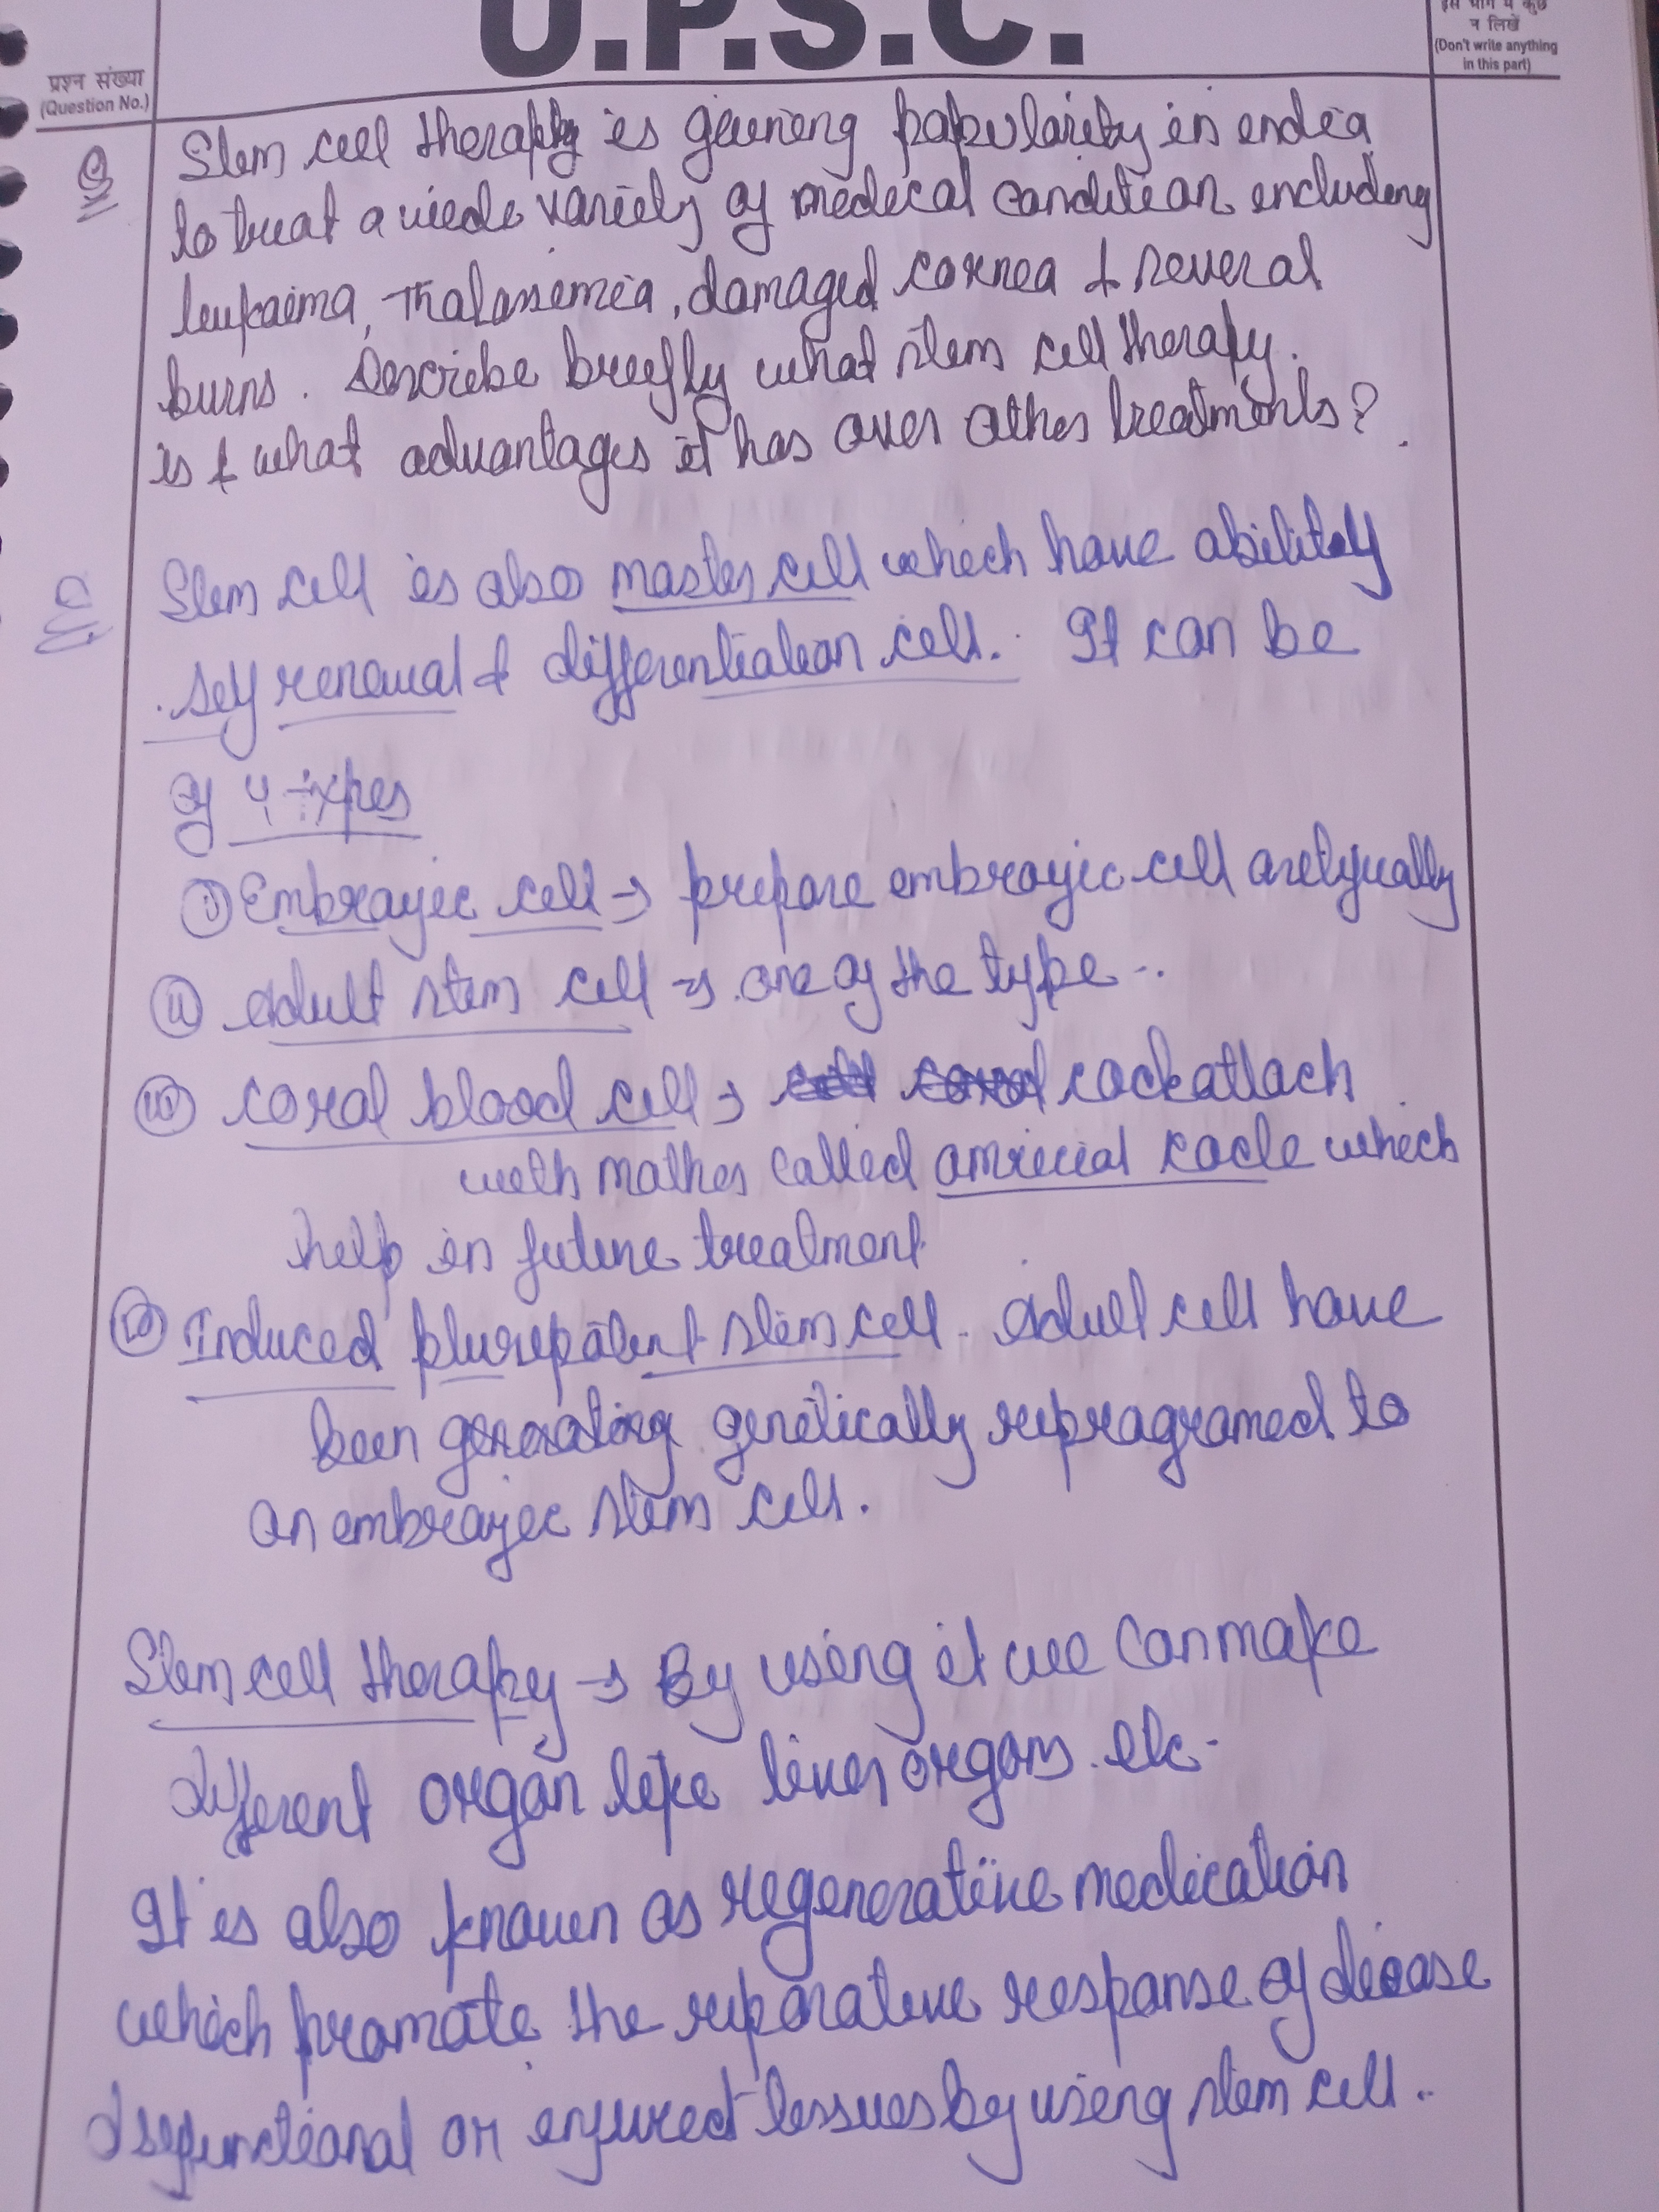 U.P.S.C.
इस भाग में कुछ
न लिखें
(Don't write anything
in this part)
प्रश्न संख्या
(Question No.)
Stem cell therapy is gaining popularity in india
to treat a wide variety of medical condition including
leukaima, Thalassemia, damaged cornea & several
burns. Describe briefly what stem cell therapy.
is & what advantages it has over other treatments?
Stem cell is also master cell which have ability
self renewal & differentiation cell. It can be
of 4 types
(i) Embrayic cell → prepare embroyic cell
(ii) Adult stem cell → one of the type..
(iii) coral blood cell →
with mother called which
help in future treatment
(iv) Induced pluripotent stem cell - Adult cell have
been generating genetically reprogramed to
an embrayic stem cell.
Stem cell therapy → By using it we can make
different organ like liver organs etc.
It is also known as regenerative medication
which promote the reparative response of disease
dysfunctional or injured tissues by using stem cell..